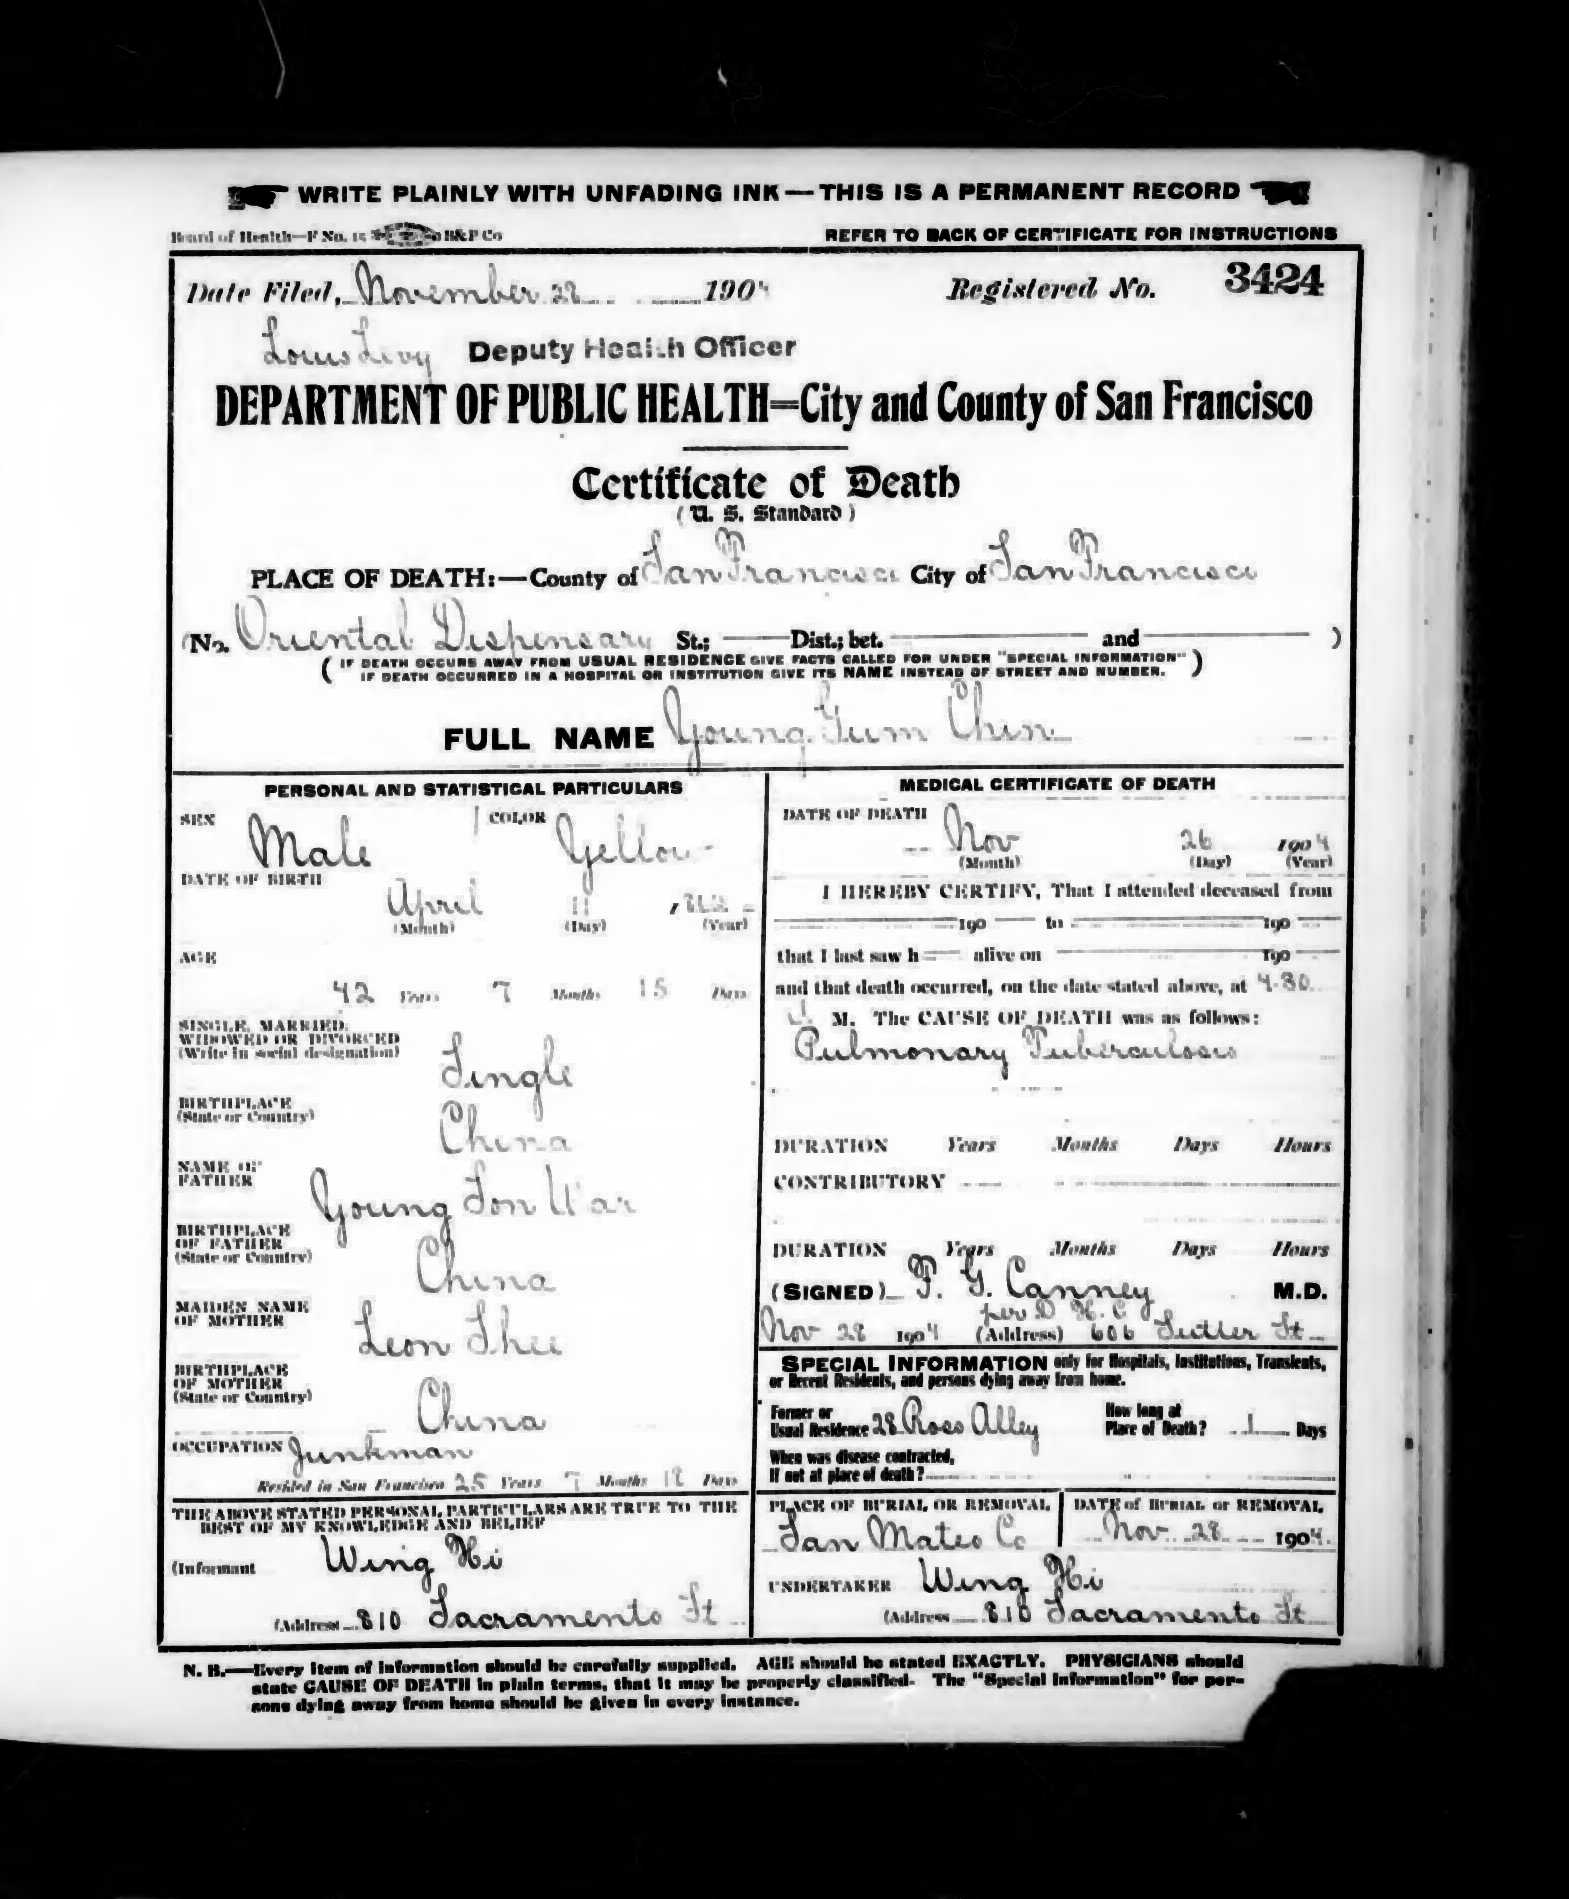 WRITE PLAINLY WITH UNFADING INK — THIS IS A PERMANENT RECORD
Board of Health—F No. 15 B&P Co REFER TO BACK OF CERTIFICATE FOR INSTRUCTIONS
Date Filed, November 28 1904 Registered No. 3424
Louis Levy Deputy Health Officer
DEPARTMENT OF PUBLIC HEALTH=City and County of San Francisco
Certificate of Death
(U. S. Standard)
PLACE OF DEATH:—County of San Francisco City of San Francisco
(No. Oriental Dispensary St.; Dist.; bet. and )
( IF DEATH OCCURS AWAY FROM USUAL RESIDENCE GIVE FACTS CALLED FOR UNDER "SPECIAL INFORMATION" )
IF DEATH OCCURRED IN A HOSPITAL OR INSTITUTION GIVE ITS NAME INSTEAD OF STREET AND NUMBER.
FULL NAME Young Gum Chin
PERSONAL AND STATISTICAL PARTICULARS
SEX Male COLOR Yellow
DATE OF BIRTH
April 11
(Month) (Day) (Year)
AGE
42 Years 7 Months 15 Days
SINGLE, MARRIED,
WIDOWED OR DIVORCED
(Write in social designation)
Single
BIRTHPLACE
(State or Country)
China
NAME OF
FATHER
Young Son War
BIRTHPLACE
OF FATHER
(State or Country)
China
MAIDEN NAME
OF MOTHER
Leon Shee
BIRTHPLACE
OF MOTHER
(State or Country)
China
OCCUPATION Junkman
Resided in San Francisco 25 Years 7 Months 18 Days
THE ABOVE STATED PERSONAL PARTICULARS ARE TRUE TO THE
BEST OF MY KNOWLEDGE AND BELIEF
(Informant Wing Hi
(Address 810 Sacramento St
MEDICAL CERTIFICATE OF DEATH
DATE OF DEATH
Nov 26 1904
(Month) (Day) (Year)
I HEREBY CERTIFY, That I attended deceased from
190 to 190
that I last saw h alive on 190
and that death occurred, on the date stated above, at 4.30
M. The CAUSE OF DEATH was as follows:
Pulmonary Tuberculosis
DURATION Years Months Days Hours
CONTRIBUTORY
DURATION Years Months Days Hours
(SIGNED) P. G. Canney M.D.
per D. H. C.
Nov 28 1904 (Address) 606 Sutter St
SPECIAL INFORMATION only for Hospitals, Institutions, Transients,
or Recent Residents, and persons dying away from home.
Former or
Usual Residence 28 Ross Alley
How long at
Place of Death? 1 Days
When was disease contracted,
If not at place of death?
PLACE OF BURIAL OR REMOVAL
San Mateo Co
DATE of BURIAL or REMOVAL
Nov. 28 1904.
UNDERTAKER Wing Hi
(Address 810 Sacramento St
N. B.—Every item of information should be carefully supplied. AGE should be stated EXACTLY. PHYSICIANS should
state CAUSE OF DEATH in plain terms, that it may be properly classified. The "Special Information" for per-
sons dying away from home should be given in every instance.